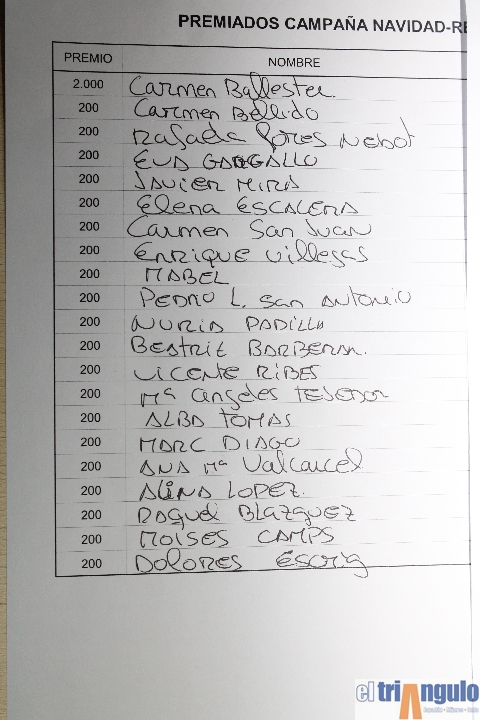 PREMIADOS CAMPAÑA NAVIDAD-RE
PREMIO NOMBRE
2.000 Carmen Ballester
200 Carmen Bellido
200 Rafaela Gores Nebot
200 EVA GARGALLO
200 JAVIER MIRA
200 Elena ESCALERA
200 Carmen San Juan
200 Enrique Villegas
200 MABEL
200 PEDRO L. San Antonio
200 NURIA PADILLA
200 BEATRIZ BARBERAN.
200 VICENTE RIBES
200 Mª Angeles TEJEDOR
200 ALBA TOMAS
200 MARC DIAGO
200 ANA Mª Valcarcel
200 Alina LOPEZ.
200 Raquel BLAZQUEZ
200 MOISES CAMPS
200 Dolores Escrig
el triangulo